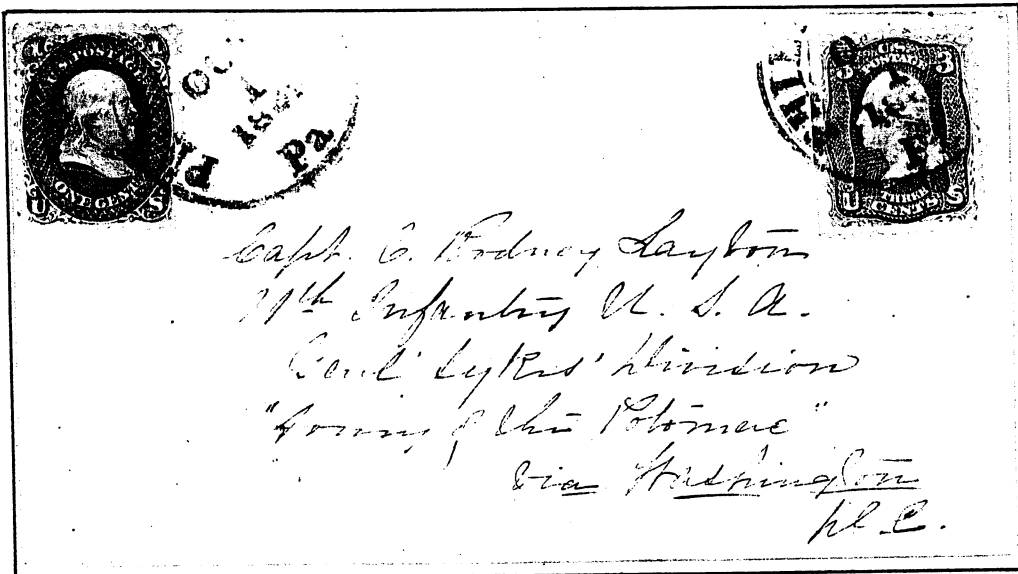 1 1
U.S. POSTAGE
ONE CENT
U S
OC
1
186
Ph Pa
PHIL
3 3
U.S. POSTAGE
THREE CENTS
U S
Capt. C. Rodney Layton
11th Infantry U. S. A.
Genl Sykes' Division
"Army of the Potomac"
via Washington
D.C.